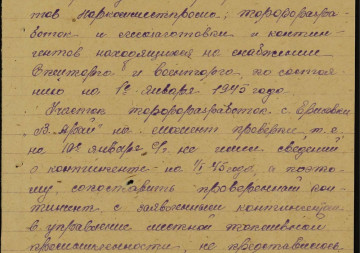 тов Наркомместпрома; торфоразра-
боток и лесозаготовки и контин-
гентов находящихся на снабжении
и военторга, по состоя
нию на 1е января 1945 года.
Участок торфоразработок с.
на момент проверки, т.е.
на 10е января с/г не имел сведений
о контингенте на 1/I 45 года, а поэто-
му сопоставить проверенный кон-
тингент с заявленным контингентом
в управление местной топливной
промышленности, не представилось